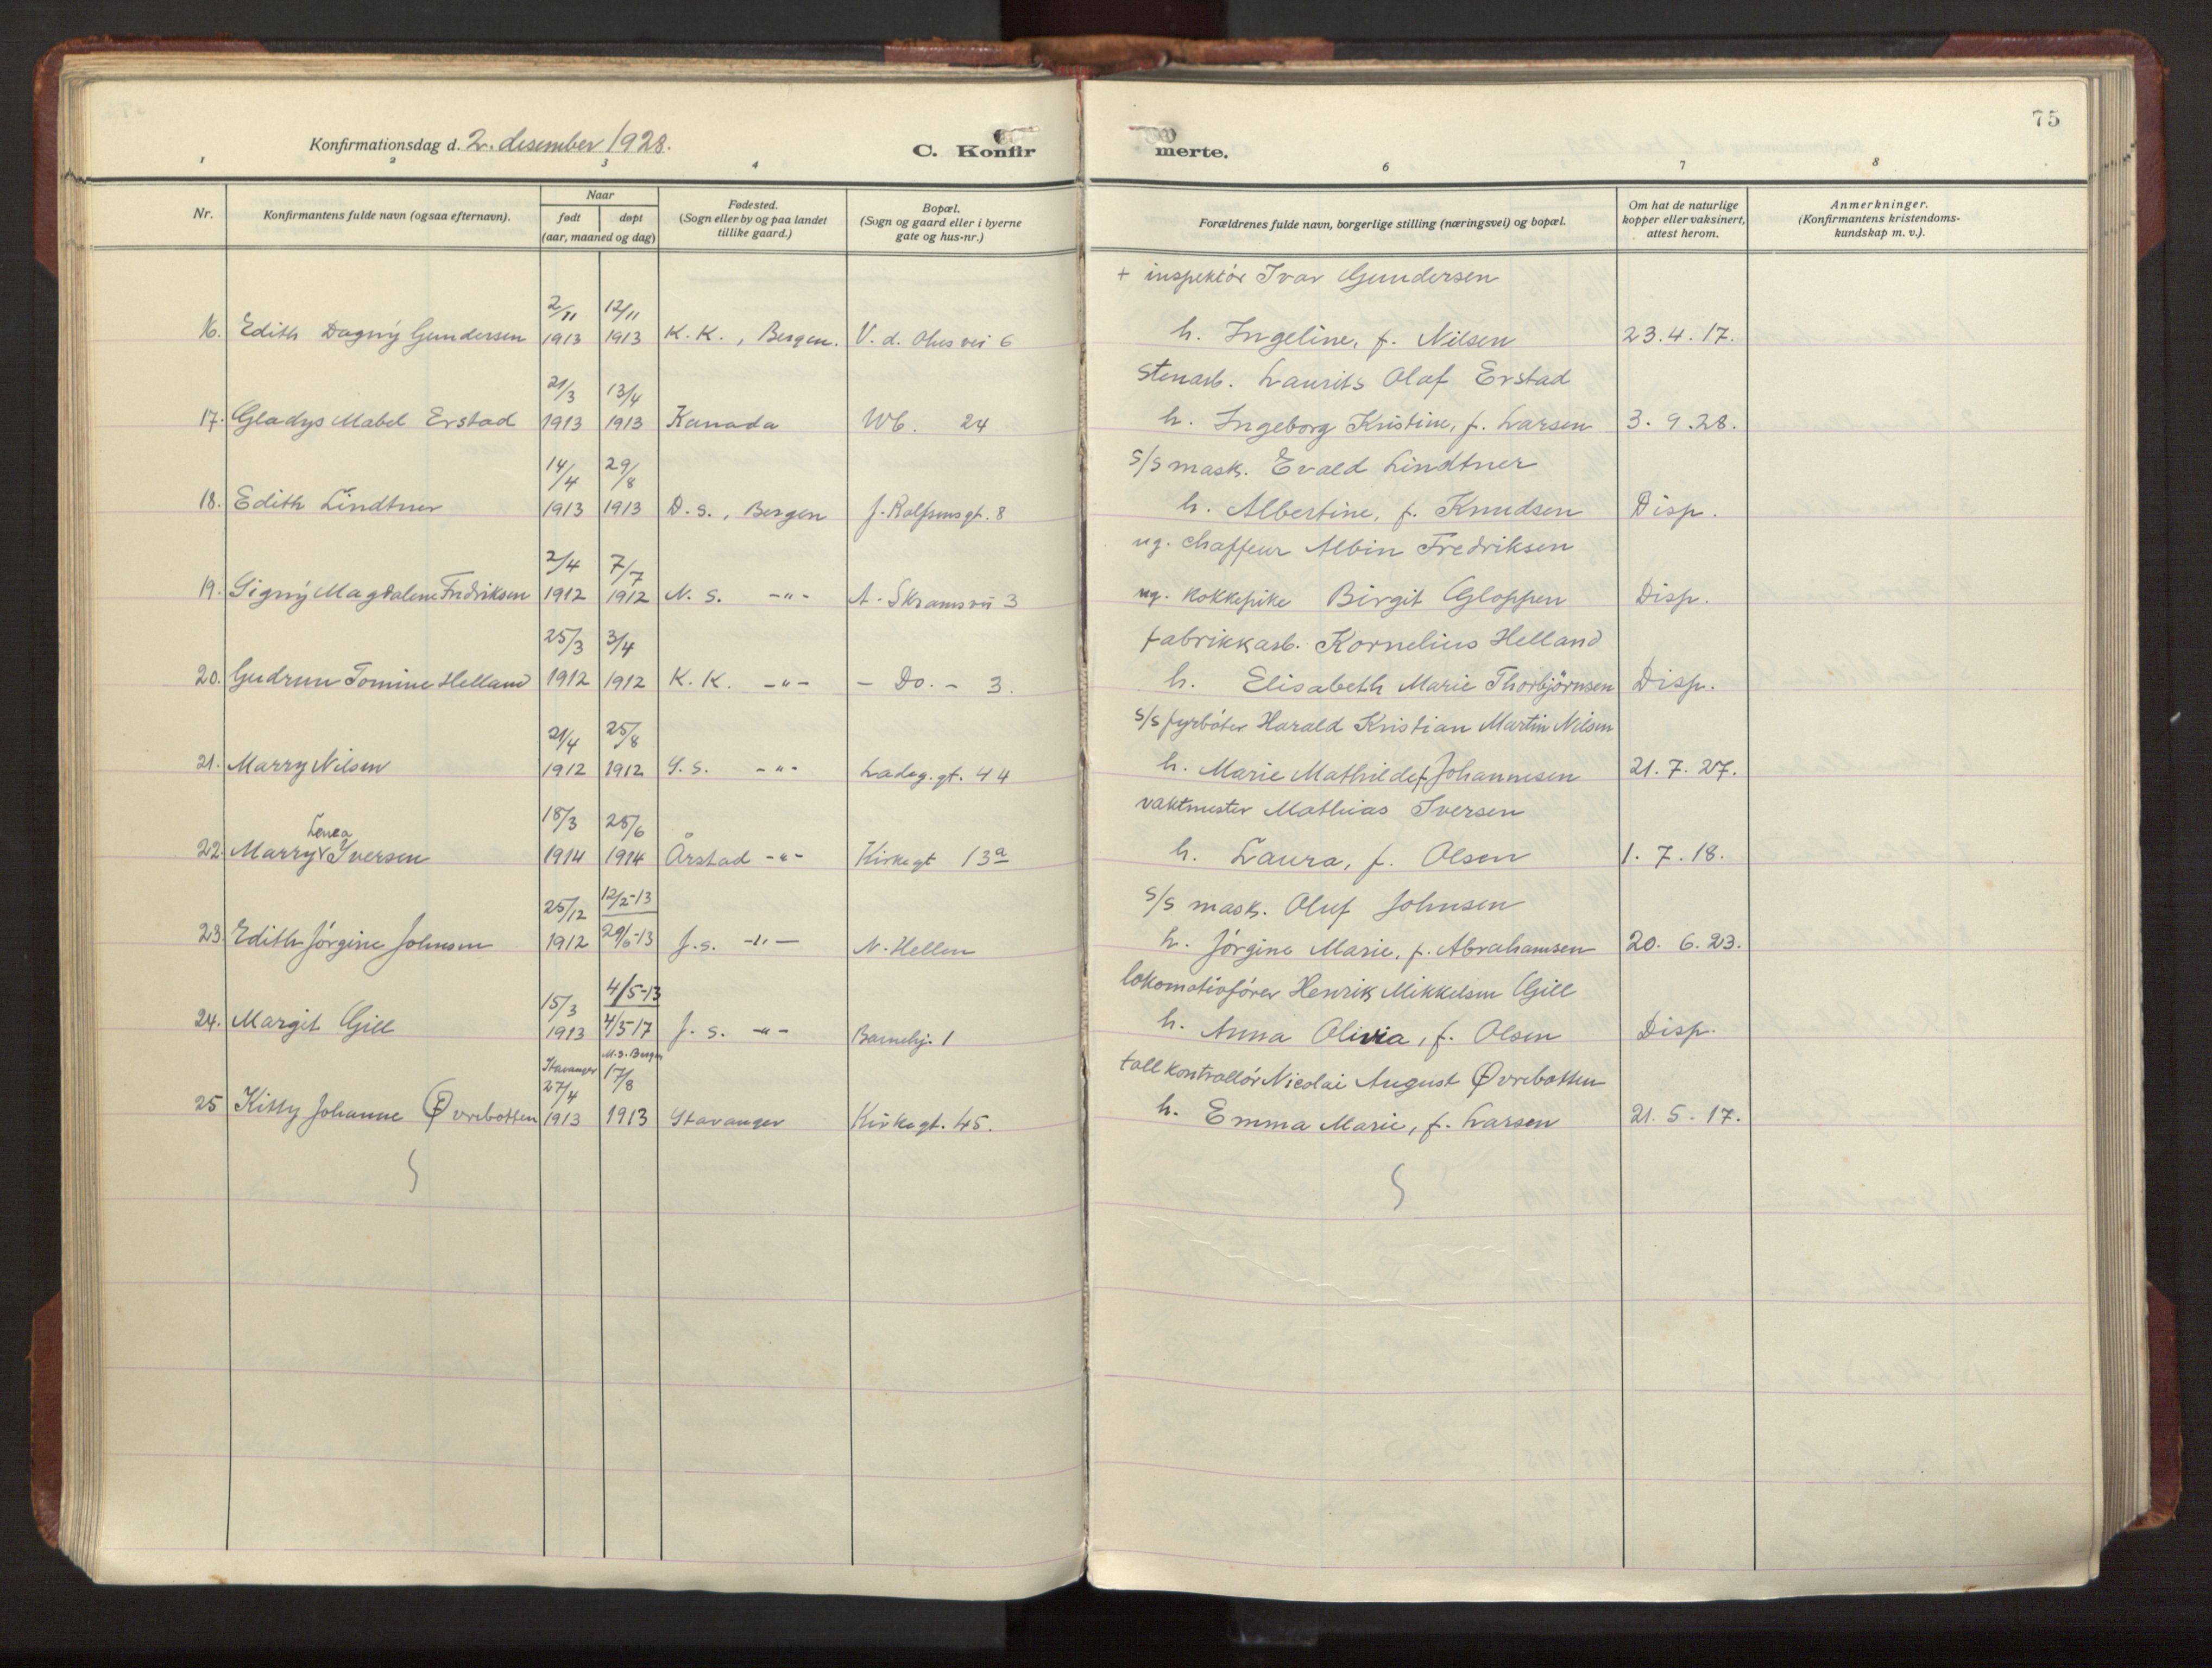 75
Konfirmationsdag d. 2. desember 1928.
C. Konfirmerte.
1 2 3 4 6 7 8
Nr.
Konfirmantens fulde navn (ogsaa efternavn).
Naar
født døpt
(aar, maaned og dag)
Fødested.
(Sogn eller by og paa landet
tillike gaard.)
Bopæl.
(Sogn og gaard eller i byerne
gate og hus-nr.)
Forældrenes fulde navn, borgerlige stilling (næringsvei) og bopæl.
Om hat de naturlige
kopper eller vaksinert,
attest herom.
Anmerkninger.
(Konfirmantens kristendoms-
kundskap m. v.).
+ inspektör Ivar Gundersen
2/11 12/11
16. Edith Dagný Gundersen 1913 1913 K. K., Bergen. V. d. Ohes vei 6 h. Ingeline, f. Nilsen 23.4.17.
21/3 13/4 Stenarb. Laurits Olaf Erstad
17. Gladys Mabel Erstad 1913 1913 Kanada Wb. 24 h. Ingeborg Kristine, f. Larsen 3.9.28.
14/4 29/8 S/S mask. Evald Lindtner
18. Edith Lindtner 1913 1913 D. s., Bergen J. Rolfsensgt. 8 h. Albertine, f. Knudsen Disp.
2/4 7/7 ug. chaffeur Albin Fredriksen
19. Signý Magdalene Fredriksen 1912 1912 N. S. -"- A. Skramsvei 3 ug. kokkepike Birgit Gloppen Disp.
25/3 3/4 fabrikkarb. Kornelius Helland
20. Gudrun Tomine Helland 1912 1912 K. K. -"- - Do. - 3. h. Elisabeth Marie Thorbjörnsen Disp.
21/4 25/8 S/S fyrböter Harald Kristian Martin Nilsen
21. Marry Nilsen 1912 1912 S. S. -"- Ladeg. gt. 44 h. Marie Mathilde f. Johannesen 21.7.27.
18/3 28/6 vaktmester Mathias Iversen
Lenea
22. Marry Iversen 1914 1914 Årstad -"- Kirkegt 13a h. Laura, f. Olsen 1.7.18.
25/12 12/2-13 S/S mask. Oluf Johnsen
23. Edith Jörgine Johnsen 1912 29/6-13 J. s. -"- N. Hellen h. Jörgine Marie, f. Abrahamsen 20.6.23.
15/3 4/5-13 lokomotivförer Henrik Mikkelsen Gill
24. Margit Gill 1913 4/5-17 J. s. -"- Barnehj. 1 h. Anna Olivia, f. Olsen Disp.
Stavanger M. S. Bergen
27/4 17/8 tollkontrollör Nicolai August Øvrebotten
25 Kitty Johanne Øvrebotten 1913 1913 Stavanger Kirkegt. 45. h. Emma Marie, f. Larsen 21.5.17.